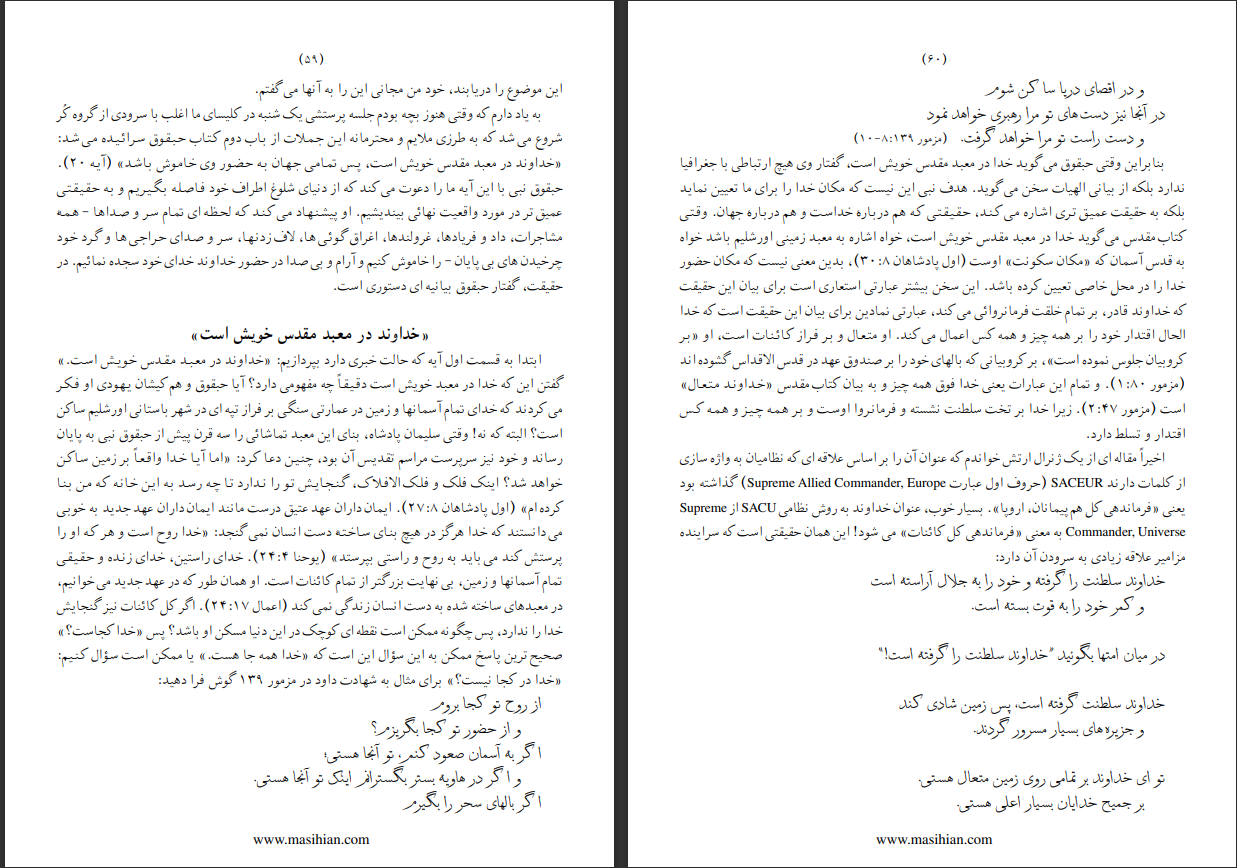 (۵۹)
این موضوع را دریابند، خود من مجانی این را به آنها می‌گفتم.
به یاد دارم که وقتی هنوز بچه بودم جلسه پرستشی یک شنبه در کلیسای ما اغلب با سرودی از گروه کُر
شروع می‌شد که به طرزی ملایم و محترمانه این جملات از باب دوم کتاب حبقوق سرائیده می‌شد:
«خداوند در معبد مقدس خویش است، پس تمامی جهان به حضور وی خاموش باشد» (آیه ۲۰).
حبقوق نبی با این آیه ما را دعوت می‌کند که از دنیای شلوغ اطراف خود فاصله بگیریم و به حقیقتی
عمیق تر در مورد واقعیت نهائی بیندیشیم. او پیشنهاد می‌کند که لحظه ای تمام سر و صداها - همه
مشاجرات، داد و فریادها، غرولندها، اغراق گوئی‌ها، لاف زدنها، سر و صدای حراجی‌ها و گرد خود
چرخیدن های بی پایان - را خاموش کنیم و آرام و بی صدا در حضور خداوند خدای خود سجده نمائیم. در
حقیقت، گفتار حبقوق بیانیه ای دستوری است.
«خداوند در معبد مقدس خویش است»
ابتدا به قسمت اول آیه که حالت خبری دارد بپردازیم: «خداوند در معبد مقدس خویش است.»
گفتن این که خدا در معبد خویش است دقیقاً چه مفهومی دارد؟ آیا حبقوق و هم کیشان یهودی او فکر
می‌کردند که خدای تمام آسمانها و زمین در عمارتی سنگی بر فراز تپه ای در شهر باستانی اورشلیم ساکن
است؟ البته که نه! وقتی سلیمان پادشاه، بنای این معبد تماشائی را سه قرن پیش از حبقوق نبی به پایان
رساند و خود نیز سرپرست مراسم تقدیس آن بود، چنین دعا کرد: «اما آیا خدا واقعاً بر زمین ساکن
خواهد شد؟ اینک فلک و فلک‌الافلاک، گنجایش تو را ندارد تا چه رسد به این خانه که من بنا
کرده ام» (اول پادشاهان ۲۷:۸). ایمان داران عهد عتیق درست مانند ایمان داران عهد جدید به خوبی
می‌دانستند که خدا هرگز در هیچ بنای ساخته دست انسان نمی‌گنجد: «خدا روح است و هر که او را
پرستش کند می باید به روح و راستی بپرستد» (یوحنا ۲۴:۴). خدای راستین، خدای زنده و حقیقی
تمام آسمانها و زمین، بی نهایت بزرگتر از تمام کائنات است. او همان طور که در عهد جدید می‌خوانیم،
در معبدهای ساخته شده به دست انسان زندگی نمی‌کند (اعمال ۲۴:۱۷). اگر کل کائنات نیز گنجایش
خدا را ندارد، پس چگونه ممکن است نقطه ای کوچک در این دنیا مسکن او باشد؟ پس «خدا کجاست؟»
صحیح ترین پاسخ ممکن به این سؤال این است که «خدا همه جا هست.» یا ممکن است سؤال کنیم:
«خدا در کجا نیست؟» برای مثال به شهادت داود در مزمور ۱۳۹ گوش فرا دهید:
از روح تو کجا بروم
و از حضور تو کجا بگریزم؟
اگر به آسمان صعود کنم، تو آنجا هستی؛
و اگر در هاویه بستر بگسترانم اینک تو آنجا هستی.
اگر بالهای سحر را بگیرم
www.masihian.com
(۶۰)
و در اقصای دریا ساکن شوم
در آنجا نیز دست‌های تو مرا رهبری خواهد نمود
و دست راست تو مرا خواهد گرفت. (مزمور ۱۳۹:۸-۱۰)
بنابراین وقتی حبقوق می‌گوید خدا در معبد مقدس خویش است، گفتار وی هیچ ارتباطی با جغرافیا
ندارد بلکه از بیانی الهیات سخن می‌گوید. هدف نبی این نیست که مکان خدا را برای ما تعیین نماید
بلکه به حقیقت عمیق تری اشاره می‌کند، حقیقتی که هم درباره خداست و هم درباره جهان. وقتی
کتاب‌مقدس می‌گوید خدا در معبد مقدس خویش است، خواه اشاره به معبد زمینی اورشلیم باشد خواه
به قدس آسمان که «مکان سکونت» اوست (اول پادشاهان ۳۰:۸)، بدین معنی نیست که مکان حضور
خدا را در محل خاصی تعیین کرده باشد. این سخن بیشتر عبارتی استعاری است برای بیان این حقیقت
که خداوند قادر، بر تمام خلقت فرمانروائی می‌کند، عبارتی نمادین برای بیان این حقیقت است که خدا
الحال اقتدار خود را بر همه چیز و همه کس اعمال می‌کند. او متعال و بر فراز کائنات است، او «بر
کروبیان جلوس نموده است»، بر کروبیانی که بالهای خود را بر صندوق عهد در قدس الاقداس گشوده اند
(مزمور ۱:۸۰). و تمام این عبارات یعنی خدا فوق همه چیز و به بیان کتاب‌مقدس «خداوند متعال»
است (مزمور ۲:۴۷). زیرا خدا بر تخت سلطنت نشسته و فرمانروا اوست و بر همه چیز و همه کس
اقتدار و تسلط دارد.
اخیراً مقاله ای از یک ژنرال ارتش خواندم که عنوان آن را بر اساس علاقه ای که نظامیان به واژه سازی
از کلمات دارند SACEUR (حروف اول عبارت Supreme Allied Commander, Europe) گذاشته بود
یعنی «فرماندهی کل هم پیمانان، اروپا». بسیار خوب، عنوان خداوند به روش نظامی SACU از Supreme
Commander, Universe به معنی «فرماندهی کل کائنات» می شود! این همان حقیقتی است که سراینده
مزامیر علاقه زیادی به سرودن آن دارد:
خداوند سلطنت را گرفته و خود را به جلال آراسته است
و کمر خود را به قوت بسته است.
در میان امتها بگوئید "خداوند سلطنت را گرفته است!"
خداوند سلطنت گرفته است، پس زمین شادی کند
و جزیره‌های بسیار مسرور گردند.
تو ای خداوند بر تمامی روی زمین متعال هستی.
بر جمیع خدایان بسیار اعلی هستی.
www.masihian.com